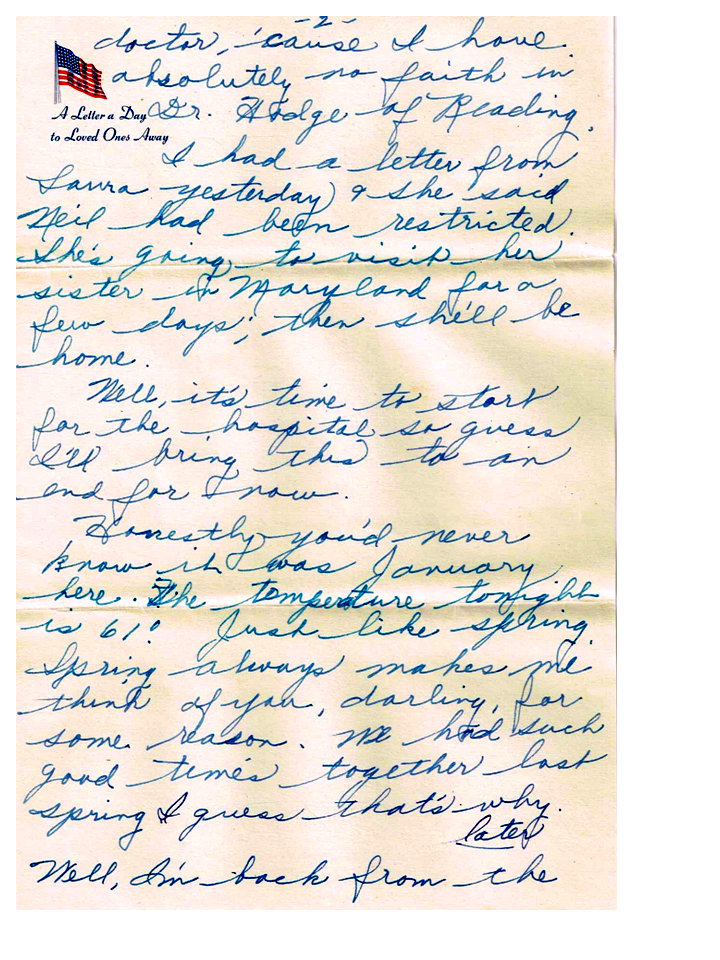 -2-
doctor, 'cause I have
absolutely no faith in
Dr. Hodge of Reading.
A Letter a Day
to Loved Ones Away
I had a letter from
Laura yesterday & she said
Neil had been restricted.
She's going to visit her
sister in Maryland for a
few days; then she'll be
home.
Well, it's time to start
for the hospital so guess
I'll bring this to an
end for now.
Honestly you'd never
know it was January
here. The temperature tonight
is 61° Just like spring.
Spring always makes me
think of you, darling, for
some reason. We had such
good times together last
spring I guess that's why.
later
Well, I'm back from the